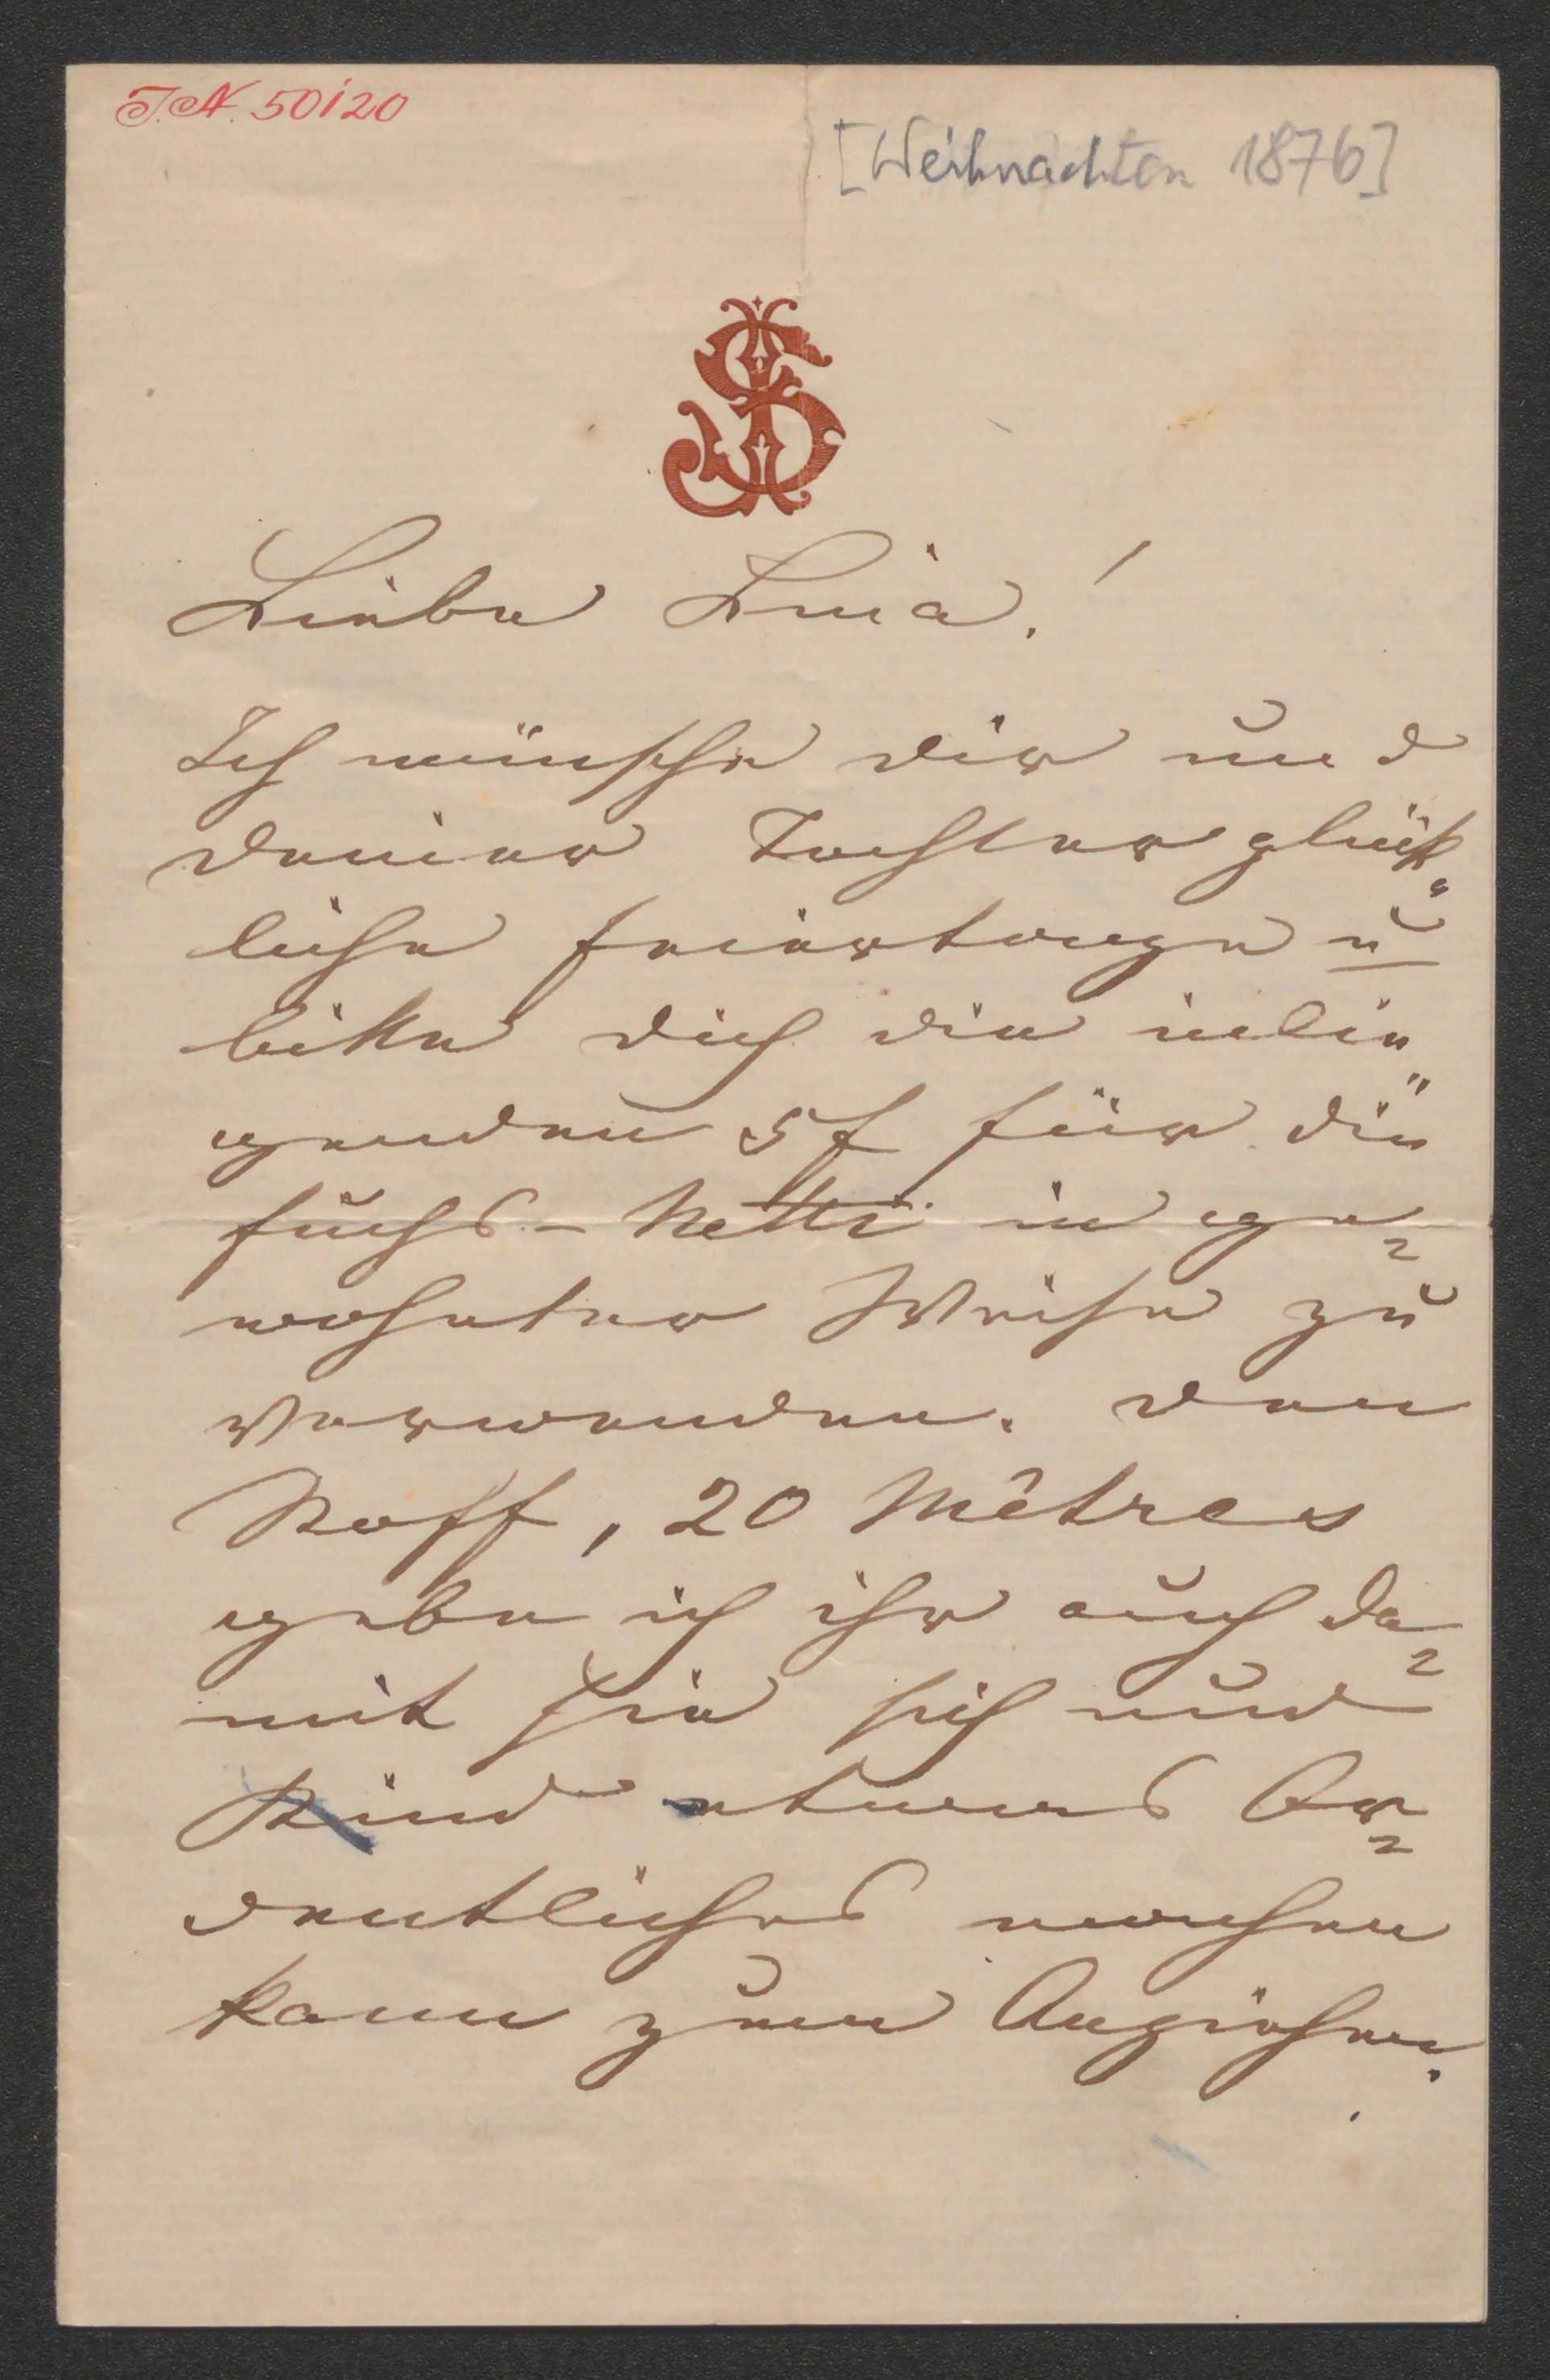 I.N. 50120
[Weihnachten 1876]
JS
Liebe Luia!
Ich wünsche dir und
deiner Tochter glück-
liche Feiertage u
bitte dich die inlie-
genden 5 f für die
Fuchs-Netti in ge-
wohnter Weise zu
verwenden. den
Stoff, 20 Mêtres
gebe ich ihr auch da-
mit sie sich und
Kind etwas Or-
dentliches machen
kann zum Anziehen.